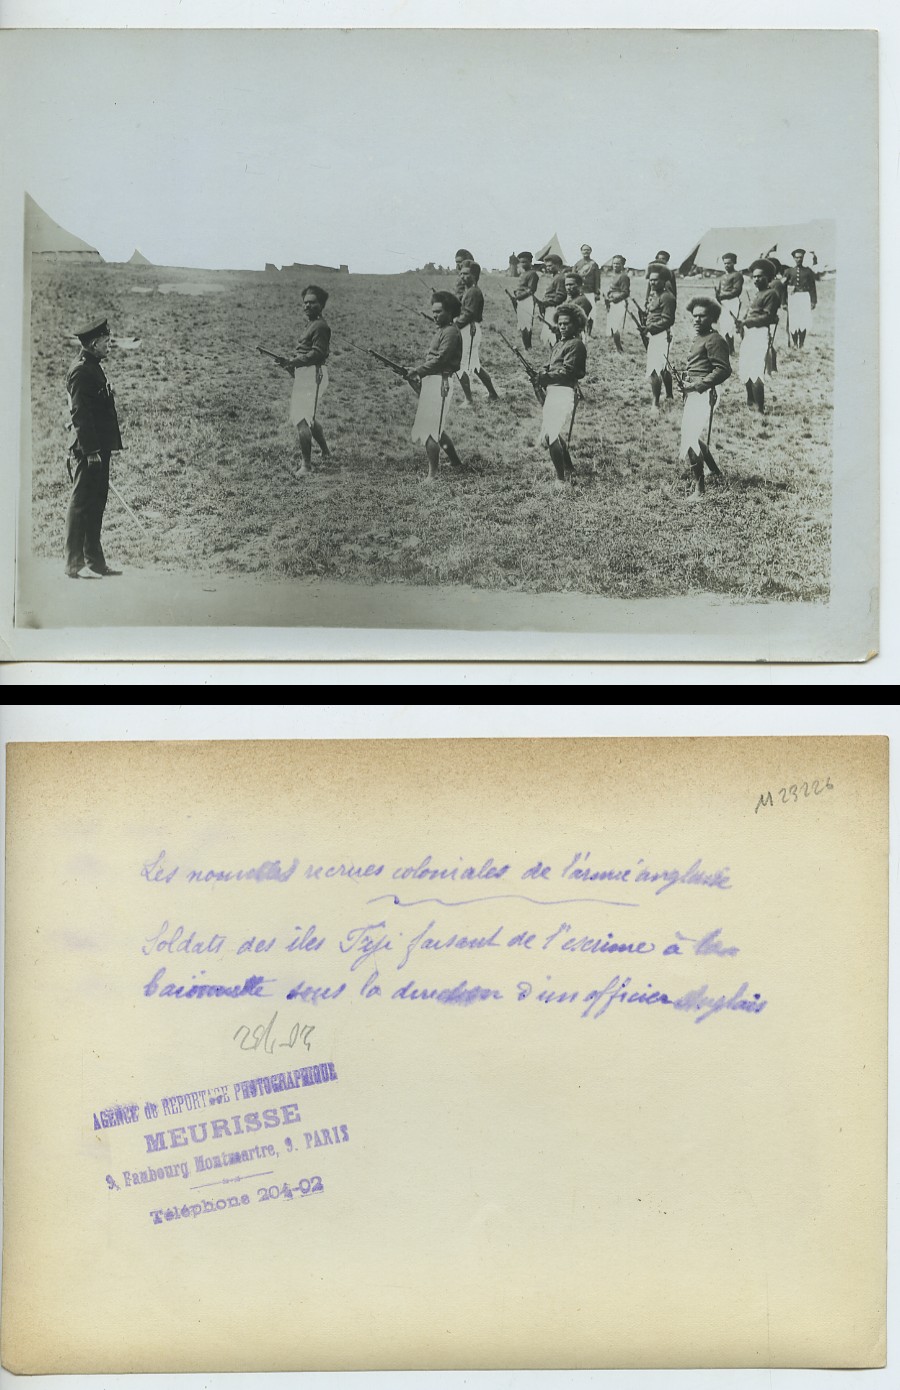 M 23226
Les nouvelles recrues coloniales de l'armée anglaise
Soldats des îles Fiji faisant de l'escrime à la
baïonnette sous la direction d'un officier Anglais
AGENCE de REPORTAGE PHOTOGRAPHIQUE
MEURISSE
9, Faubourg Montmartre, 9. PARIS
Téléphone 204-02